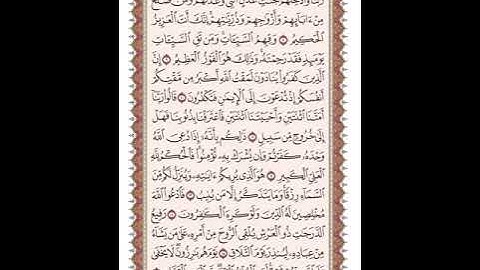 رَبَّنَا وَأَدْخِلْهُمْ جَنَّٰتِ عَدْنٍ ٱلَّتِى وَعَدتَّهُمْ وَمَن صَلَحَ
مِنْ ءَابَآئِهِمْ وَأَزْوَٰجِهِمْ وَذُرِّيَّٰتِهِمْ إِنَّكَ أَنتَ ٱلْعَزِيزُ
ٱلْحَكِيمُ ۝ وَقِهِمُ ٱلسَّيِّـَٔاتِ وَمَن تَقِ ٱلسَّيِّـَٔاتِ
يَوْمَئِذٍ فَقَدْ رَحِمْتَهُۥ وَذَٰلِكَ هُوَ ٱلْفَوْزُ ٱلْعَظِيمُ ۝ إِنَّ
ٱلَّذِينَ كَفَرُوا۟ يُنَادَوْنَ لَمَقْتُ ٱللَّهِ أَكْبَرُ مِن مَّقْتِكُمْ
أَنفُسَكُمْ إِذْ تُدْعَوْنَ إِلَى ٱلْإِيمَٰنِ فَتَكْفُرُونَ ۝ قَالُوا۟ رَبَّنَآ
أَمَتَّنَا ٱثْنَتَيْنِ وَأَحْيَيْتَنَا ٱثْنَتَيْنِ فَٱعْتَرَفْنَا بِذُنُوبِنَا فَهَلْ
إِلَىٰ خُرُوجٍ مِّن سَبِيلٍ ۝ ذَٰلِكُم بِأَنَّهُۥٓ إِذَا دُعِىَ ٱللَّهُ
وَحْدَهُۥ كَفَرْتُمْ وَإِن يُشْرَكْ بِهِۦ تُؤْمِنُوا۟ فَٱلْحُكْمُ لِلَّهِ
ٱلْعَلِىِّ ٱلْكَبِيرِ ۝ هُوَ ٱلَّذِى يُرِيكُمْ ءَايَٰتِهِۦ وَيُنَزِّلُ لَكُم مِّنَ
ٱلسَّمَآءِ رِزْقًا وَمَا يَتَذَكَّرُ إِلَّا مَن يُنِيبُ ۝ فَٱدْعُوا۟ ٱللَّهَ
مُخْلِصِينَ لَهُ ٱلدِّينَ وَلَوْ كَرِهَ ٱلْكَٰفِرُونَ ۝ رَفِيعُ
ٱلدَّرَجَٰتِ ذُو ٱلْعَرْشِ يُلْقِى ٱلرُّوحَ مِنْ أَمْرِهِۦ عَلَىٰ مَن يَشَآءُ
مِنْ عِبَادِهِۦ لِيُنذِرَ يَوْمَ ٱلتَّلَاقِ ۝ يَوْمَ هُم بَٰرِزُونَ لَا يَخْفَىٰ